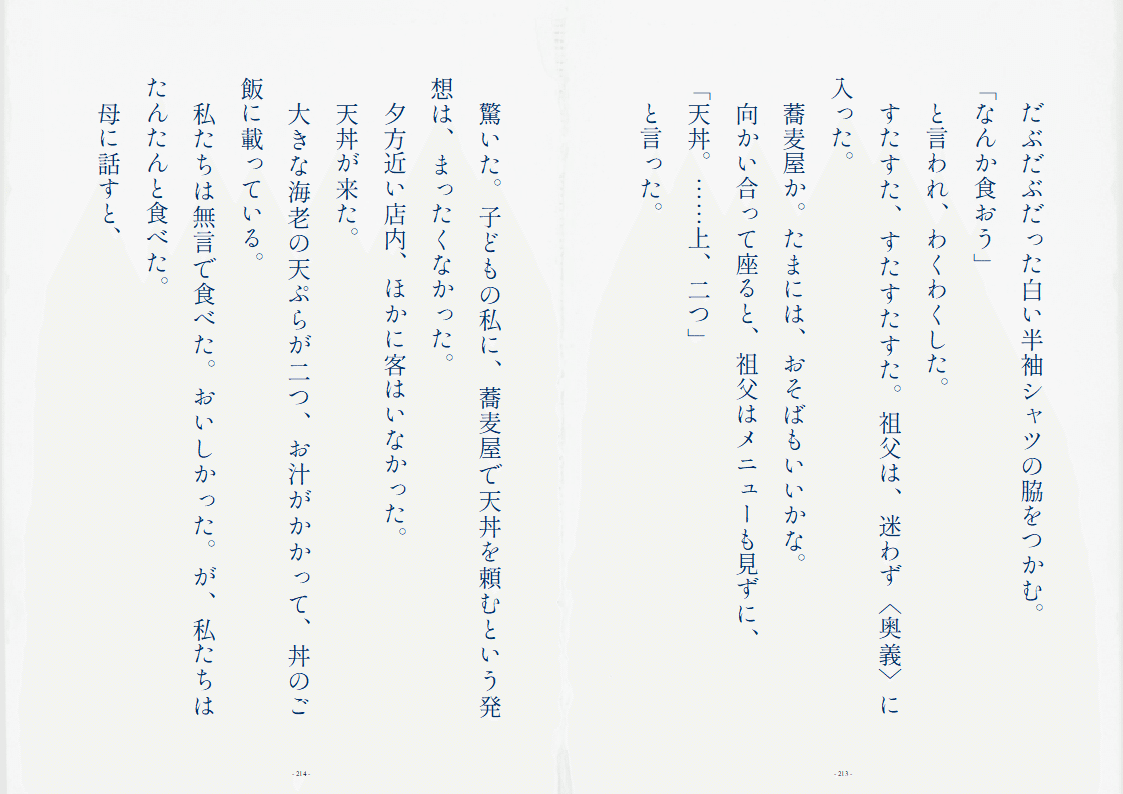 だぶだぶだった白い半袖シャツの脇をつかむ。
「なんか食おう」
と言われ、わくわくした。
すたすた、すたすたすた。祖父は、迷わず〈奥義〉に
入った。
蕎麦屋か。たまには、おそばもいいかな。
向かい合って座ると、祖父はメニューも見ずに、
「天丼。……上、二つ」
と言った。
- 213 -
驚いた。子どもの私に、蕎麦屋で天丼を頼むという発
想は、まったくなかった。
夕方近い店内、ほかに客はいなかった。
天丼が来た。
大きな海老の天ぷらが二つ、お汁がかかって、丼のご
飯に載っている。
私たちは無言で食べた。おいしかった。が、私たちは
たんたんと食べた。
母に話すと、
- 214 -